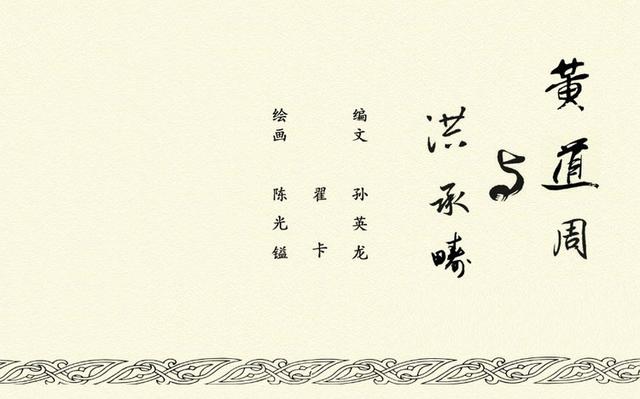 黄道周
与
洪承畴
编文 孙英龙
翟卡
绘画 陈光镒